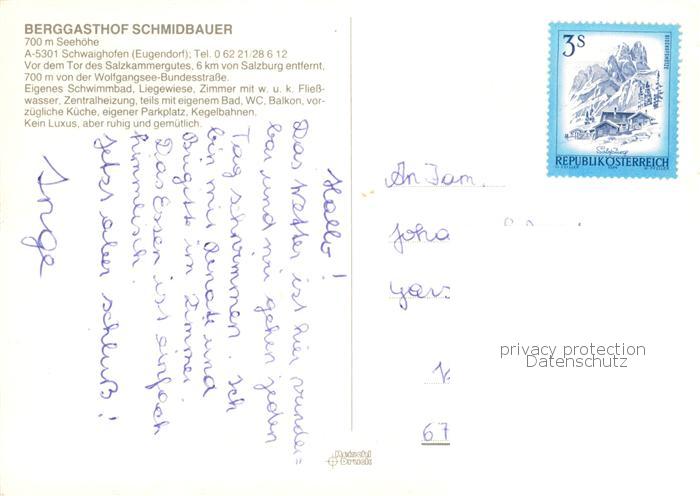 BERGGASTHOF SCHMIDBAUER
700 m Seehöhe
A-5301 Schwaighofen (Eugendorf); Tel. 0 62 21/28 6 12
Vor dem Tor des Salzkammergutes, 6 km von Salzburg entfernt,
700 m von der Wolfgangsee-Bundesstraße.
Eigenes Schwimmbad, Liegewiese, Zimmer mit w. u. k. Fließ-
wasser, Zentralheizung, teils mit eigenem Bad, WC, Balkon, vor-
zügliche Küche, eigener Parkplatz, Kegelbahnen.
Kein Luxus, aber ruhig und gemütlich.
Hallo!
Das Wetter ist hier wunder=
bar und wir gehen jeden
Tag schwimmen. Ich
bin mit Renate und
Brigitte im Zimmer.
Das Essen ist einfach
himmlisch.
Jetzt aber schluß!
Inge
3 S
BISCHOFSMÜTZE
Salzburg
REPUBLIK ÖSTERREICH
An Fam.
Joha
67
privacy protection
Datenschutz
Ketschl
Druck